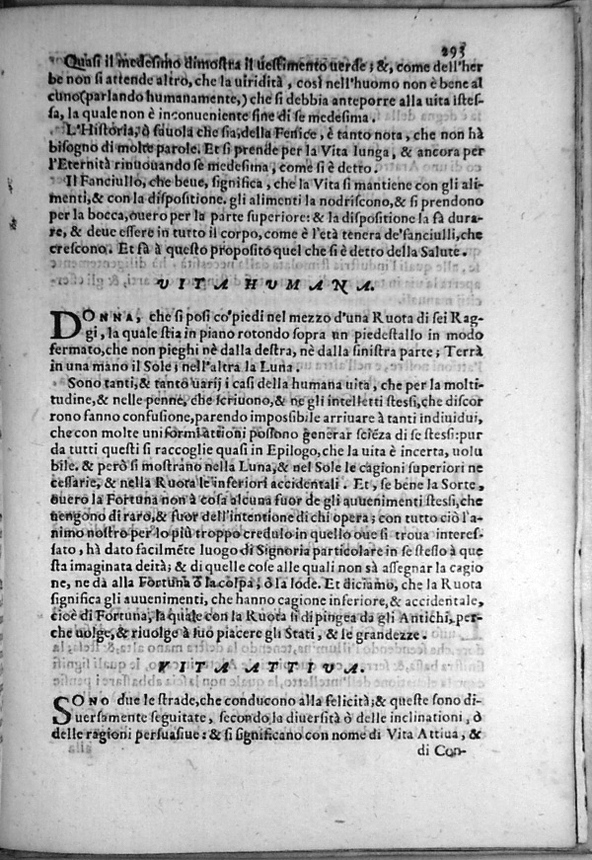 293
Quasi il medesimo dimostra il uestimento uerde; &, come dell'her
be non si attende altro, che la uiridità, così nell'huomo non è bene al
cuno (parlando humanamente,) che si debbia anteporre alla uita istes-
sa, la quale non è inconueniente fine di se medesima.
L'Historia, ò fauola che sia, della Fenice, è tanto nota, che non hà
bisogno di molte parole. Et si prende per la Vita lunga, & ancora per
l'Eternità rinuouando se medesima, come si è detto.
Il Fanciullo, che beue, significa, che la Vita si mantiene con gli ali-
menti, & con la dispositione, gli alimenti la nodriscono, & si prendono
per la bocca, ouero per la parte superiore: & la dispositione la fà dura-
re, & deue essere in tutto il corpo, come è l'età tenera de'fanciulli, che
crescono. Et fà à questo proposito quel che si è detto della Salute.
VITA HUMANA.
DONNA, che si posi co'piedi nel mezzo d'una Ruota di sei Rag-
gi, la quale stia in piano rotondo sopra un piedestallo in modo
fermato, che non pieghi nè dalla destra, nè dalla sinistra parte; Terrà
in una mano il Sole; nell'altra la Luna.
Sono tanti, & tanto uarij i casi della humana uita, che per la molti-
tudine, & nelle penne, che scriuono, & ne gli intelletti stessi, che discor
rono fanno confusione, parendo impossibile arriuare à tanti indiuidui,
che con molte uniformi attioni possono generar sciẽza di se stessi: pur
da tutti questi si raccoglie quasi in Epilogo, che la uita è incerta, uolu
bile. & però si mostrano nella Luna, & nel Sole le cagioni superiori ne
cessarie, & nella Ruota le inferiori accidentali. Et, se bene la Sorte,
ouero la Fortuna non à cosa alcuna fuor de gli auuenimenti stessi, che
uengono di raro, & fuor dell'intentione di chi opera; con tutto ciò l'a-
nimo nostro per lo più troppo credulo in quello oue si troua interes-
sato, hà dato facilmẽte luogo di Signoria particolare in se stesso à que
sta imaginata deità; & di quelle cose alle quali non sà assegnar la cagio
ne, ne dà alla Fortuna ò la colpa, ò la lode. Et diciamo, che la Ruota
significa gli auuenimenti, che hanno cagione inferiore, & accidentale,
cioè di Fortuna, la quale con la Ruota si dipingea da gli Antichi, per-
che uolge, & riuolge à suo piacere gli Stati, & le grandezze.
VITA ATTIUA.
SONO due le strade, che conducono alla felicità; & queste sono di-
uersamente seguitate, secondo la diuersità ò delle inclinationi, ò
delle ragioni persuasiue: & si significano con nome di Vita Attiua, &
di Con-